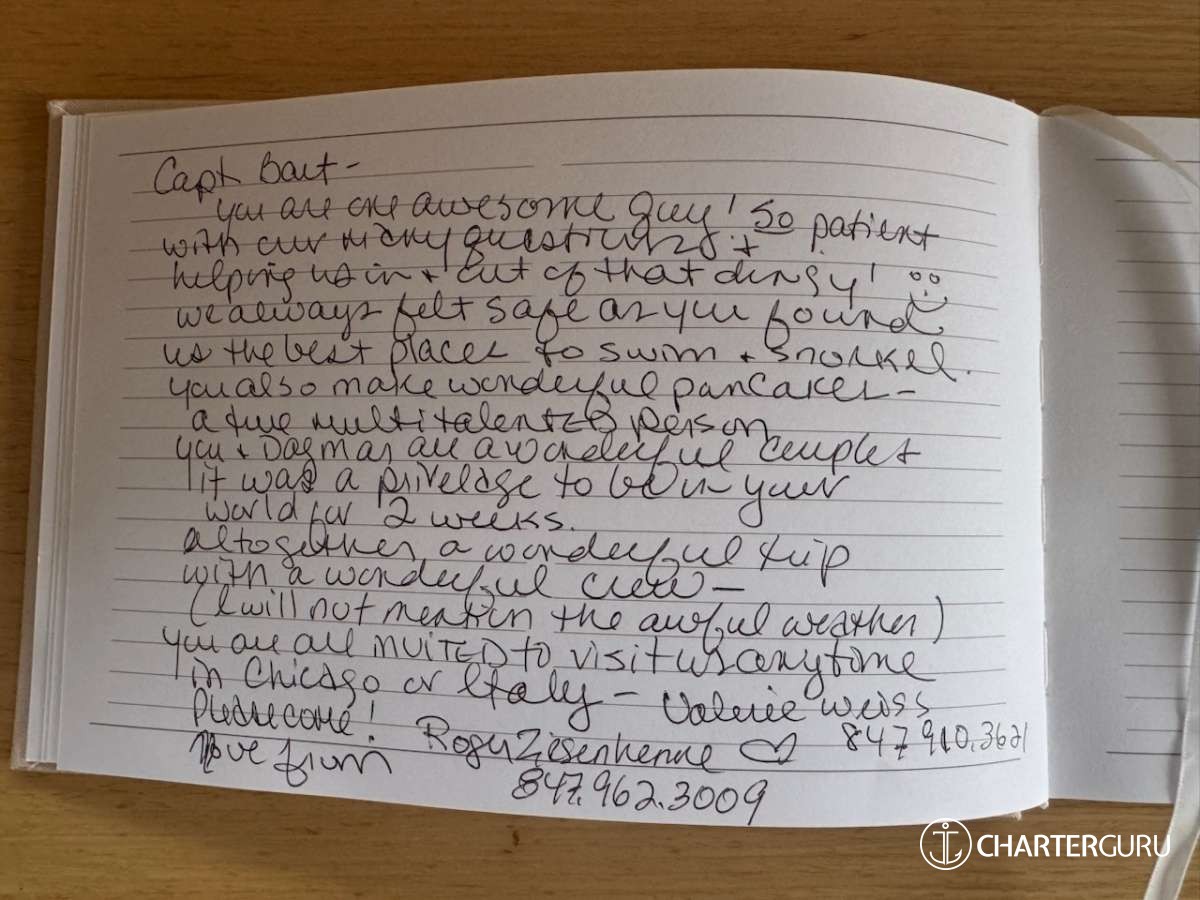 Capt. Bart -
you are one awesome guy! So patient
with our many questions +
helping us in + out of that dingy!
we always felt safe as you found
us the best places to swim + snorkel.
you also make wonderful pancakes -
a true multitalented person
you + Dagmar are a wonderful couple +
it was a privelage to be in your
world for 2 weeks.
altogether a wonderful trip
with a wonderful crew -
(I will not mention the awful weather)
you are all INVITED to visit us anytime
in Chicago or Italy - Valerie Weiss
Please come! Roger 847 910.3621
Love from
847.962.3009
CHARTERGURU